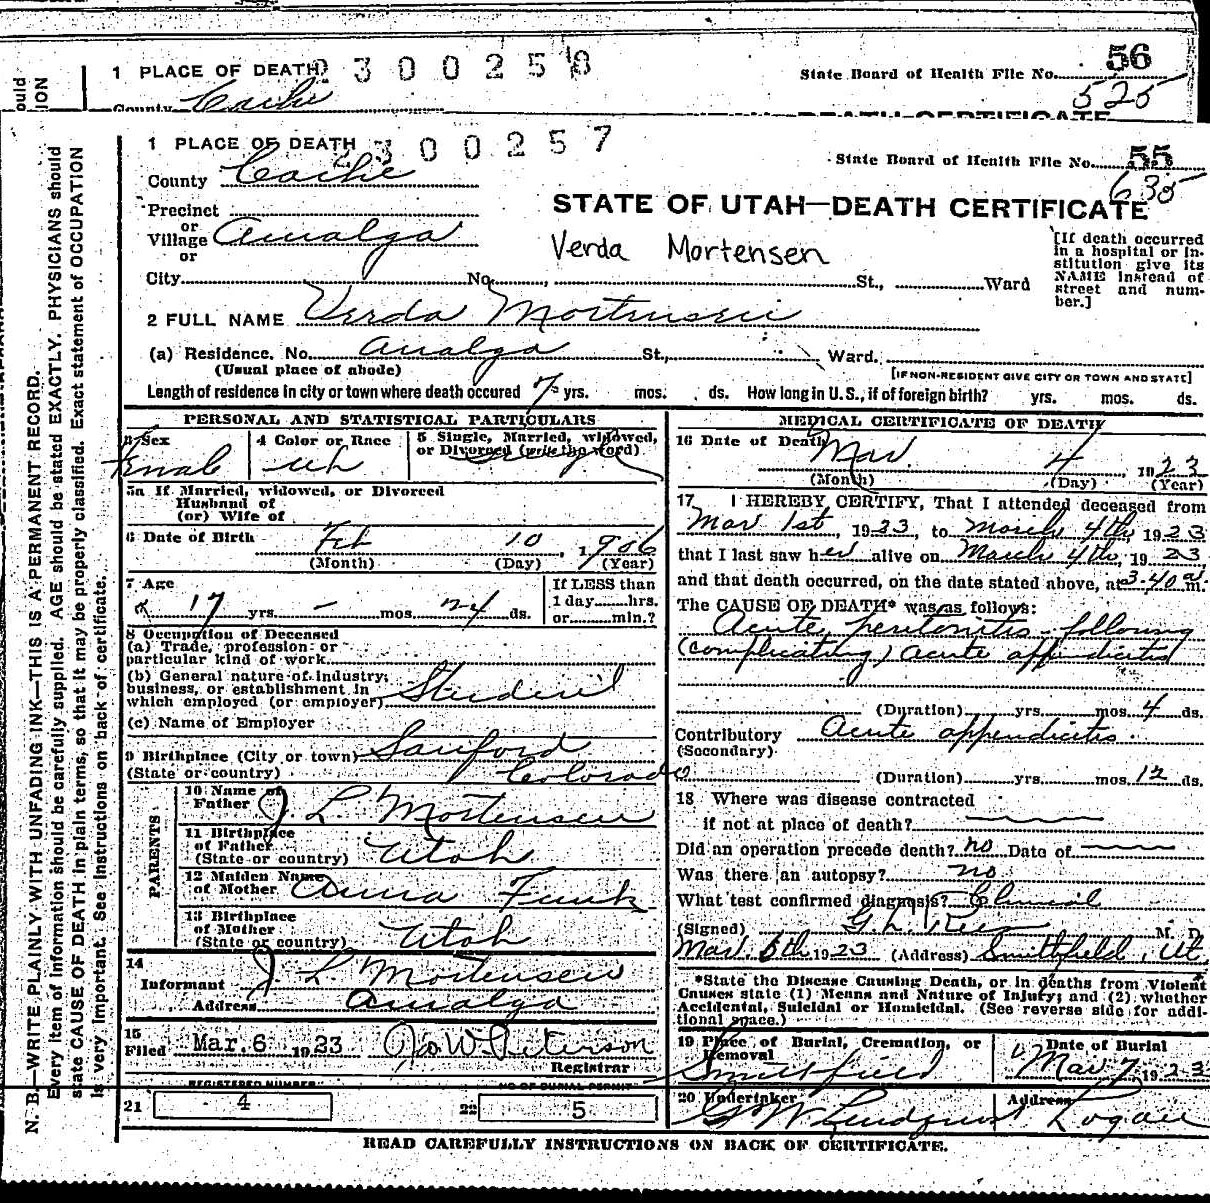 ould
ION
1 PLACE OF DEATH
2300258
State Board of Health File No. 56
County Cache
525
DEATH CERTIFICATE
1 PLACE OF DEATH
2300257
State Board of Health File No. 55
635
County Cache
STATE OF UTAH—DEATH CERTIFICATE
Precinct
or
Village Amalga
or
Verda Mortensen
[If death occurred in a hospital or institution give its NAME instead of street and number.]
City No. St., Ward
2 FULL NAME Verda Mortensen
(a) Residence. No. Amalga St., Ward.
(Usual place of abode)
[IF NON-RESIDENT GIVE CITY OR TOWN AND STATE]
Length of residence in city or town where death occured 7 yrs. mos. ds. How long in U. S., if of foreign birth? yrs. mos. ds.
PERSONAL AND STATISTICAL PARTICULARS
3 Sex
Female
4 Color or Race
Wh
5 Single, Married, widowed, or Divorced (write the word)
Single
5a If Married, widowed, or Divorced
Husband of
(or) Wife of
6 Date of Birth Feb 10, 1906
(Month) (Day) (Year)
7 Age
17 yrs. – mos. 24 ds.
If LESS than
1 day hrs.
or min.?
8 Occupation of Deceased
(a) Trade, profession or
particular kind of work
(b) General nature of industry,
business, or establishment in
which employed (or employer) Student
(c) Name of Employer
9 Birthplace (City or town) Sanford
(State or country) Colorado
PARENTS
10 Name of
Father J L Mortensen
11 Birthplace
of Father
(State or country) Utah
12 Maiden Name
of Mother Anna Funk
13 Birthplace
of Mother
(State or country) Utah
14
Informant J L Mortensen
Address Amalga
15
Filed Mar. 6 1923 Jos W. Peterson
Registrar
REGISTERED NUMBER
21 4
NO OF BURIAL PERMIT
22 5
MEDICAL CERTIFICATE OF DEATH
16 Date of Death Mar. 4 1923
(Month) (Day) (Year)
17 I HEREBY CERTIFY, That I attended deceased from
Mar 1st, 1923, to March 4th 1923
that I last saw her alive on March 4th, 1923
and that death occurred, on the date stated above, at 3.40 a m.
The CAUSE OF DEATH* was as follows:
Acute peritonitis following
(complicating) acute appendicitis
(Duration) yrs. mos. 4 ds.
Contributory Acute appendicitis.
(Secondary)
(Duration) yrs. mos. 12 ds.
18 Where was disease contracted
if not at place of death?
Did an operation precede death? no Date of
Was there an autopsy? no
What test confirmed diagnosis? Clinical
(Signed) G. L. Rees M. D.
Mar. 6th 1923 (Address) Smithfield, Ut.
*State the Disease Causing Death, or in deaths from Violent
Causes state (1) Means and Nature of Injury; and (2) whether
Accidental, Suicidal or Homicidal. (See reverse side for additional space.)
19 Place of Burial, Cremation, or
Removal
Smithfield
Date of Burial
Mar 7, 1923
20 Undertaker
G W Lindquist
Address
Logan
READ CAREFULLY INSTRUCTIONS ON BACK OF CERTIFICATE.
N. B.—WRITE PLAINLY WITH UNFADING INK—THIS IS A PERMANENT RECORD.
Every item of information should be carefully supplied. AGE should be stated EXACTLY. PHYSICIANS should
state CAUSE OF DEATH in plain terms, so that it may be properly classified. Exact statement of OCCUPATION
is very important. See instructions on back of certificate.